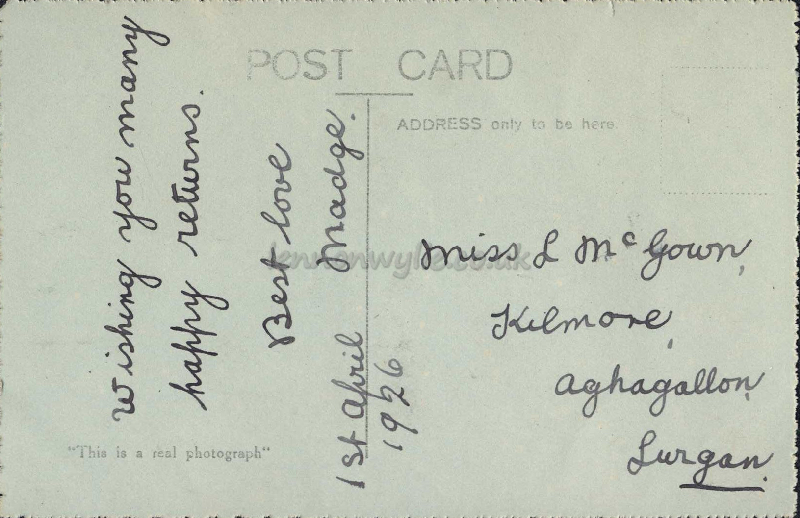 POST CARD
Wishing you many
happy returns.
Best love
Madge.
1st April
1926
ADDRESS only to be here
Miss L McGown,
Kilmore,
Aghagallon,
Lurgan.
"This is a real photograph"
lennonwylie.co.uk